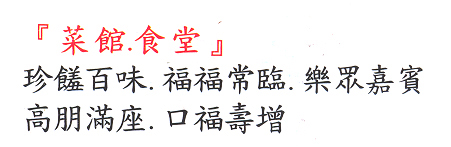 『菜館.食堂』
珍饈百味.福福常臨.樂眾嘉賓
高朋滿座.口福壽增